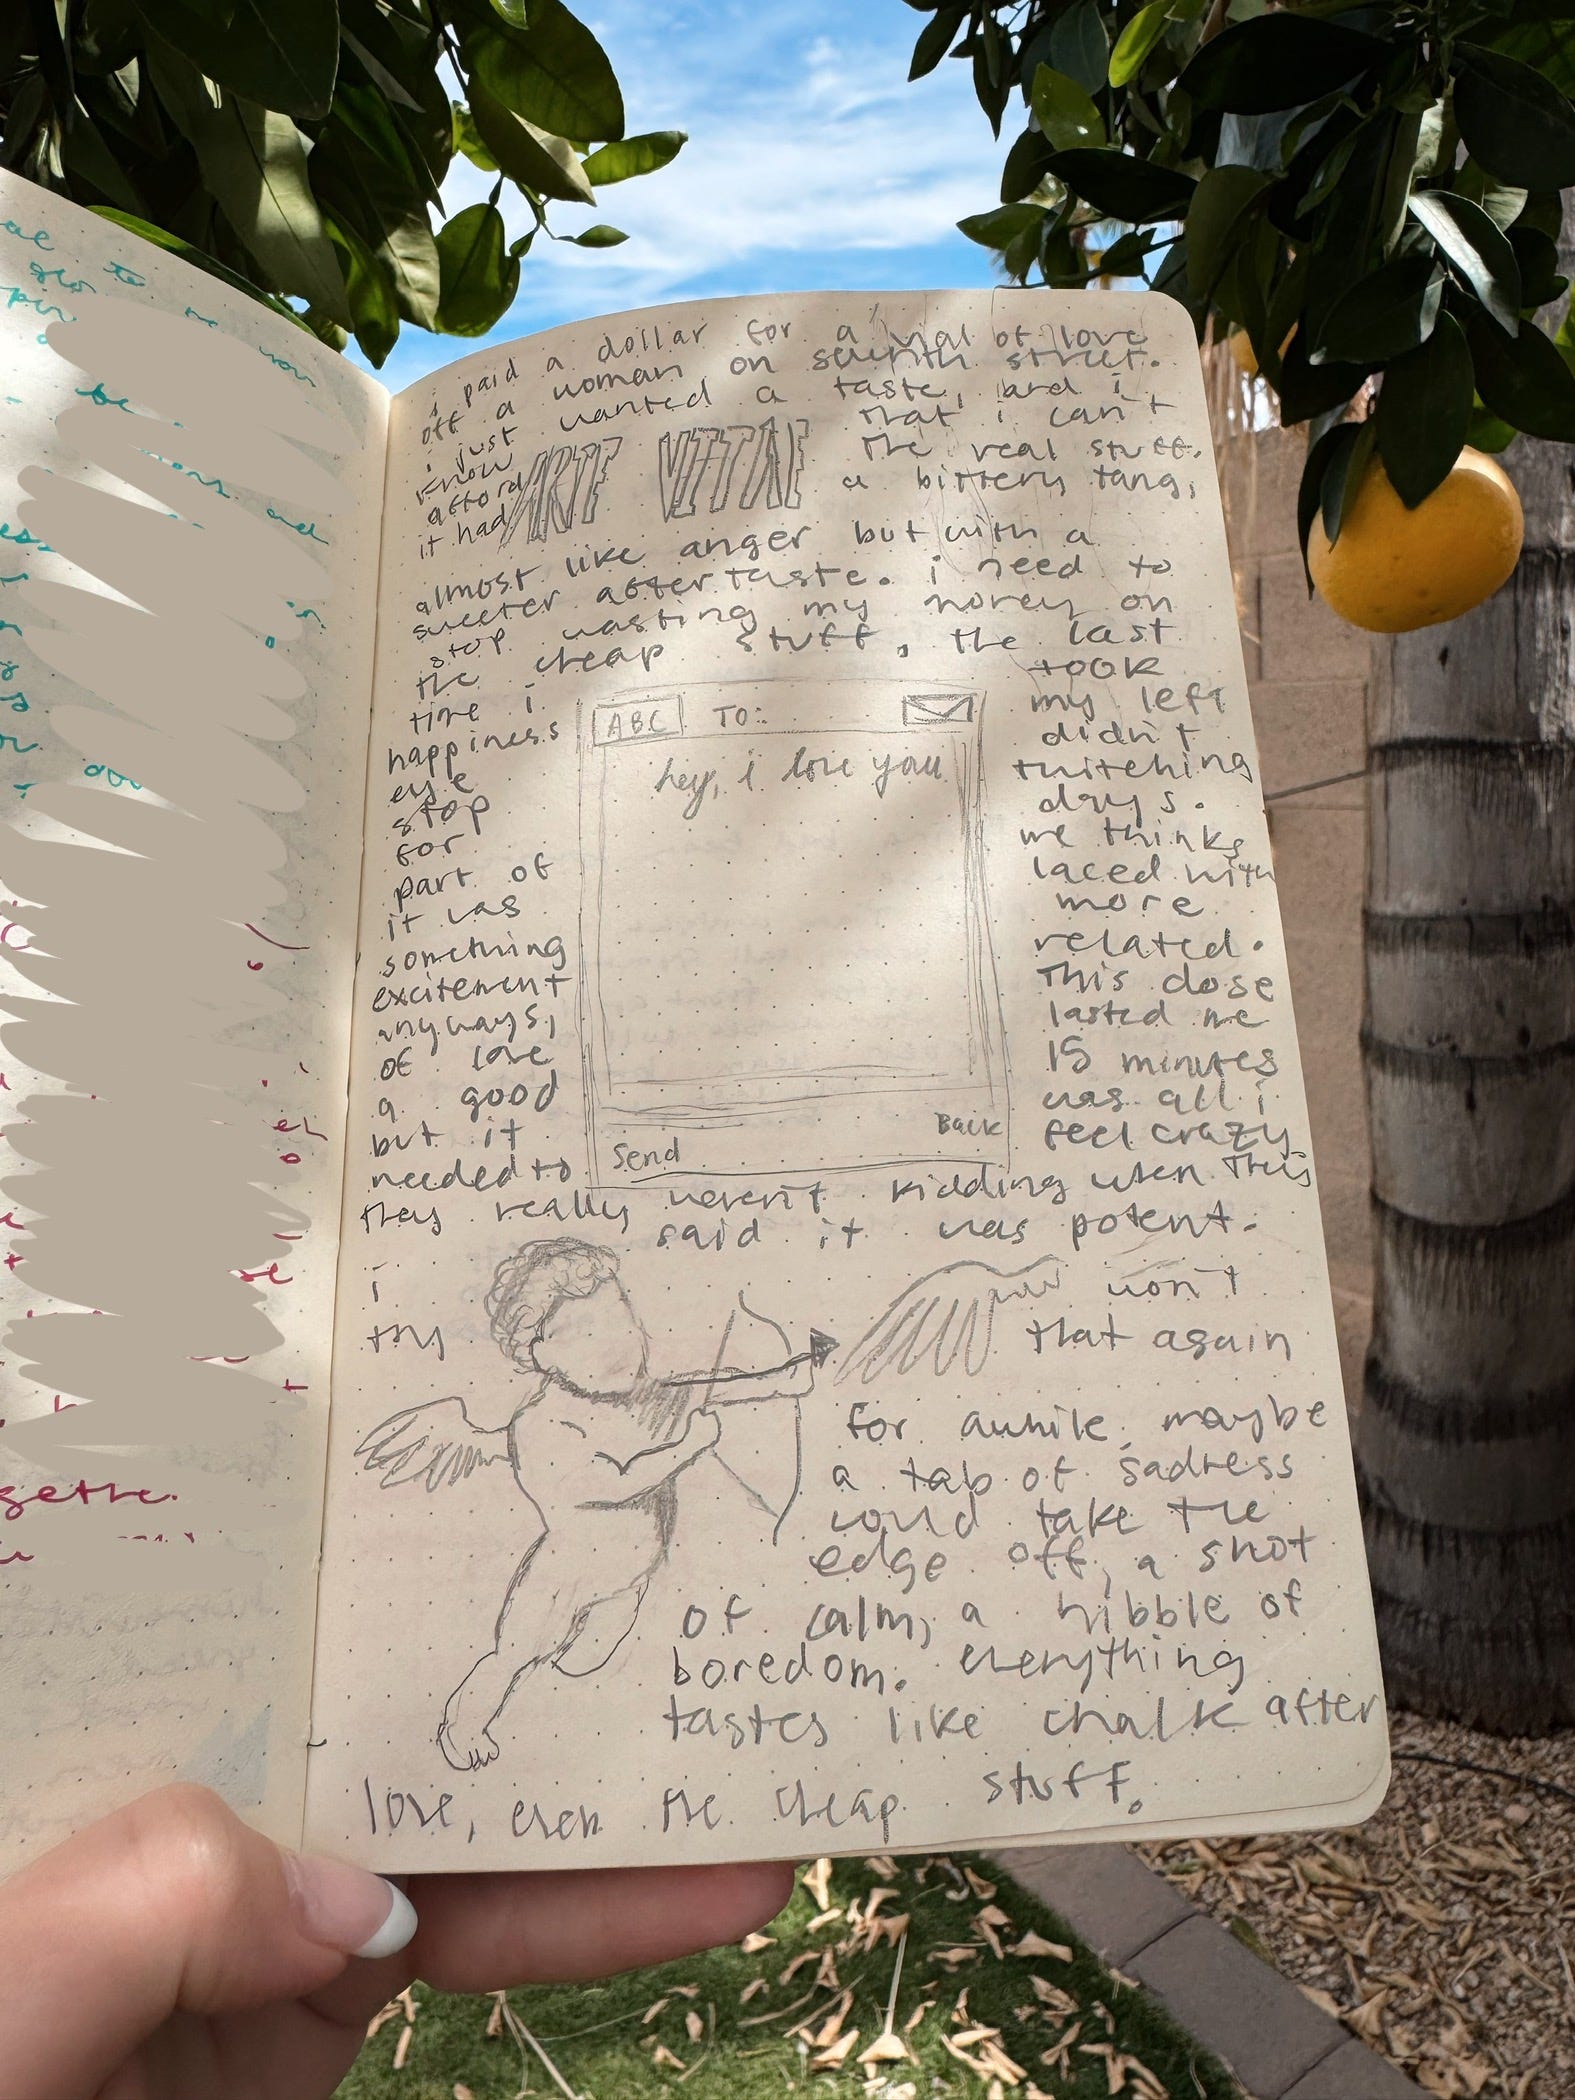 i paid a dollar for a vial of love
off a woman on seventh street.
i just wanted a taste, and i
know that i can't
afford the real stuff.
it had a bittery tang,
ARTE VITTAE
almost like anger but with a
sweeter aftertaste. i need to
stop wasting my money on
the cheap stuff, the last
time i took
happiness my left
eye didn't
stop twitching
for days.
part of me thinks
it was laced with
something more
excitement related.
anyways, this dose
of love lasted me
a good 15 minutes
but it was all i
needed to feel crazy
they really weren't kidding when they
said it was potent.
ABC TO:
hey, i love you
Send Back
i won't
try that again
for awhile, maybe
a tab of sadness
could take the
edge off, a shot
of calm, a nibble of
boredom. everything
tastes like chalk after
love, even the cheap stuff.
be